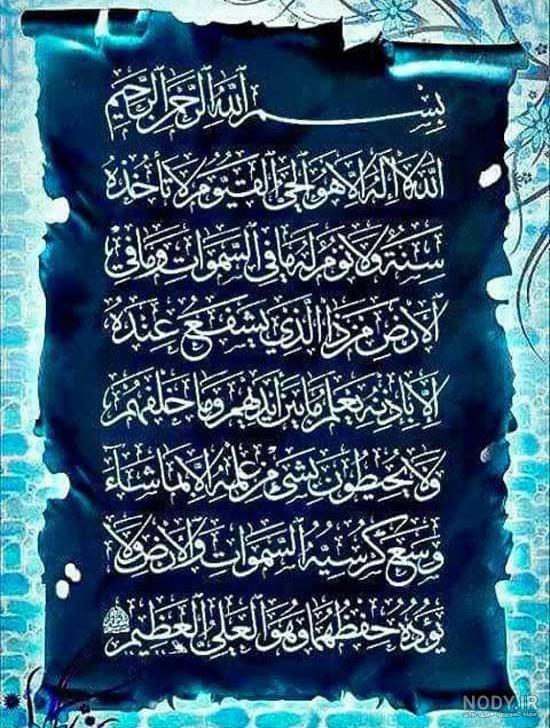 بِسْمِ اللَّهِ الرَّحْمَٰنِ الرَّحِيمِ
اللَّهُ لَا إِلَٰهَ إِلَّا هُوَ الْحَيُّ الْقَيُّومُ لَا تَأْخُذُهُ
سِنَةٌ وَلَا نَوْمٌ لَهُ مَا فِي السَّمَوَاتِ وَمَا فِي
الْأَرْضِ مَنْ ذَا الَّذِي يَشْفَعُ عِنْدَهُ
إِلَّا بِإِذْنِهِ يَعْلَمُ مَا بَيْنَ أَيْدِيهِمْ وَمَا خَلْفَهُمْ
وَلَا يُحِيطُونَ بِشَيْءٍ مِنْ عِلْمِهِ إِلَّا بِمَا شَاءَ
وَسِعَ كُرْسِيُّهُ السَّمَوَاتِ وَالْأَرْضَ وَلَا
يَؤُدُهُ حِفْظُهُمَا وَهُوَ الْعَلِيُّ الْعَظِيمُ
NODY.IR